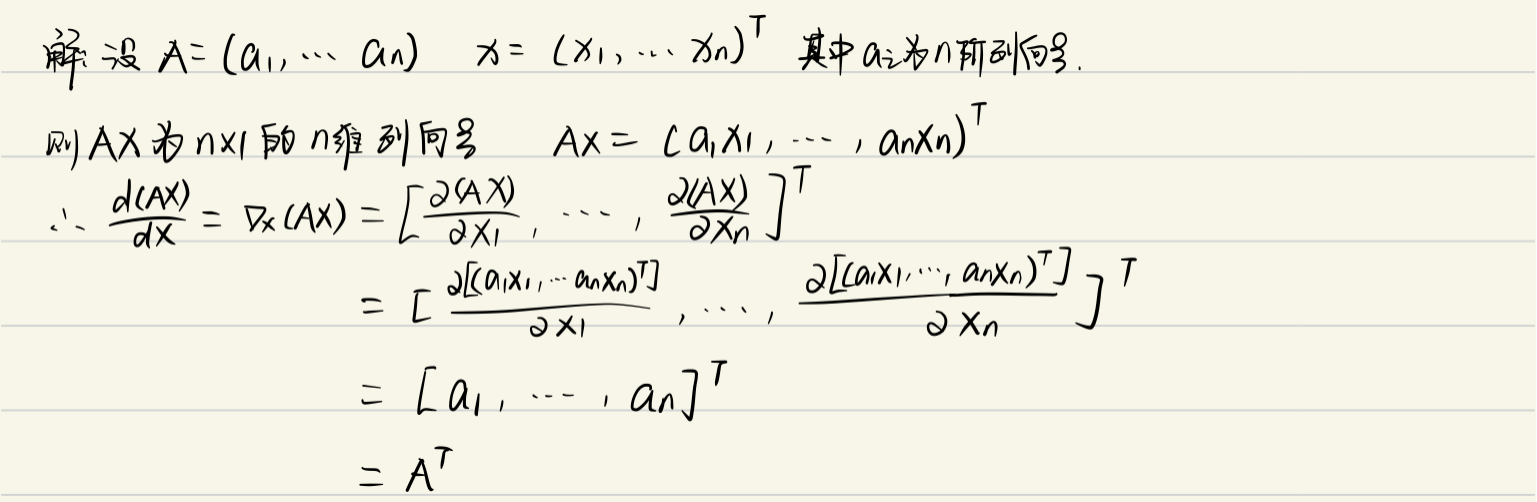 解: 设 A = (a₁, ⋯ aₙ)  x = (x₁, ⋯ xₙ)ᵀ 其中 aᵢ为n阶列向量.
则 AX 为 n×1 的 n维列向量  AX = (a₁x₁, ⋯, aₙxₙ)ᵀ
∴ d(AX)/dX = ∇ₓ(AX) = [∂(AX)/∂X₁, ⋯, ∂(AX)/∂Xₙ]ᵀ
= [∂[(a₁x₁, ⋯ aₙxₙ)ᵀ]/∂X₁, ⋯, ∂[(a₁x₁, ⋯, aₙxₙ)ᵀ]/∂Xₙ]ᵀ
= [a₁, ⋯, aₙ]ᵀ
= Aᵀ